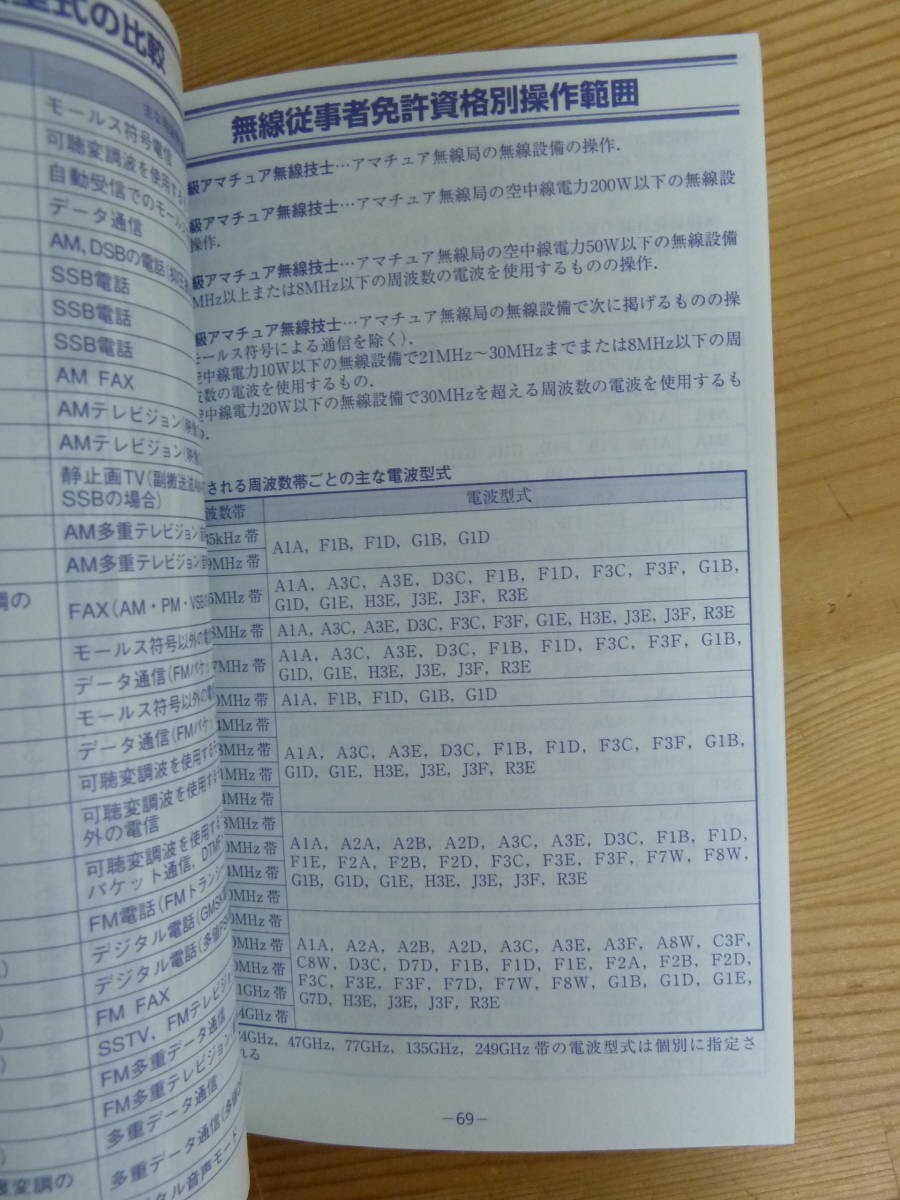 型式の比較
モールス符号電信
可聴変調波を使用する
自動受信でのモール
データ通信
AM, DSBの電話
SSB電話
SSB電話
SSB電話
AM FAX
AMテレビジョン
AMテレビジョン
静止画TV(副搬送波
SSBの場合)
AM多重テレビジョン
AM多重テレビジョン
調の
FAX(AM・PM・VSB
モールス符号以外の
データ通信(FMパケッ
モールス符号以外の
データ通信(FMパケッ
可聴変調波を使用する
可聴変調波を使用する
外の電信
可聴変調波を使用する
パケット通信, DTMF
FM電話(FMトランシ
デジタル電話(GMSK
デジタル電話(多値PS
FM FAX
SSTV, FMテレビジ
FM多重データ通信
FM多重テレビジョン
多重データ通信
変調の
多重データ通信(多
タル音声モード
無線従事者免許資格別操作範囲
級アマチュア無線技士…アマチュア無線局の無線設備の操作.
級アマチュア無線技士…アマチュア無線局の空中線電力200W以下の無線設
操作.
級アマチュア無線技士…アマチュア無線局の空中線電力50W以下の無線設備
MHz以上または8MHz以下の周波数の電波を使用するものの操作.
級アマチュア無線技士…アマチュア無線局の無線設備で次に掲げるものの操
モールス符号による通信を除く).
空中線電力10W以下の無線設備で21MHz～30MHzまでまたは8MHz以下の周
波数の電波を使用するもの.
空中線電力20W以下の無線設備で30MHzを超える周波数の電波を使用するも
の.
される周波数帯ごとの主な電波型式
波数帯 電波型式
35kHz帯
A1A, F1B, F1D, G1B, G1D
9MHz帯
5MHz帯
A1A, A3C, A3E, D3C, F1B, F1D, F3C, F3F, G1B,
G1D, G1E, H3E, J3E, J3F, R3E
8MHz帯 A1A, A3C, A3E, D3C, F3C, F3F, G1E, H3E, J3E, J3F, R3E
7MHz帯
A1A, A3C, A3E, D3C, F1B, F1D, F3C, F3F, G1B,
G1D, G1E, H3E, J3E, J3F, R3E
0MHz帯 A1A, F1B, F1D, G1B, G1D
4MHz帯
8MHz帯
1MHz帯
4MHz帯
A1A, A3C, A3E, D3C, F1B, F1D, F3C, F3F, G1B,
G1D, G1E, H3E, J3E, J3F, R3E
8MHz帯
0MHz帯
4MHz帯
0MHz帯
A1A, A2A, A2B, A2D, A3C, A3E, D3C, F1B, F1D,
F1E, F2A, F2B, F2D, F3C, F3E, F3F, F7W, F8W,
G1B, G1D, G1E, H3E, J3E, J3F, R3E
0MHz帯
0MHz帯
0MHz帯
1GHz帯
4GHz帯
A1A, A2A, A2B, A2D, A3C, A3E, A3F, A8W, C3F,
C8W, D3C, D7D, F1B, F1D, F1E, F2A, F2B, F2D,
F3C, F3E, F3F, F7D, F7W, F8W, G1B, G1D, G1E,
G7D, H3E, J3E, J3F, R3E
24GHz, 47GHz, 77GHz, 135GHz, 249GHz帯の電波型式は個別に指定さ
れる
－69－